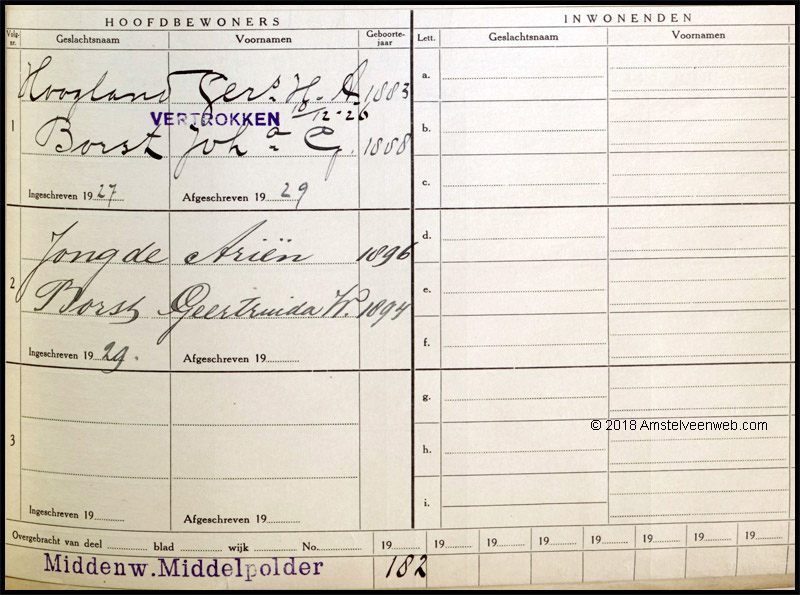 HOOFDBEWONERS
INWONENDEN
Volg-nr. Geslachtsnaam Voornamen Geboorte-jaar Lett. Geslachtsnaam Voornamen
1
Hoogland Gers. H. A. 1883
VERTROKKEN 10/12-26
Borst Joha C. 1888
Ingeschreven 1927 Afgeschreven 1929
a.
b.
c.
2
Jong de Ariën 1896
Borst Geertruida W. 1894
Ingeschreven 1929. Afgeschreven 19
d.
e.
f.
3
Ingeschreven 19 Afgeschreven 19
g.
© 2018 Amstelveenweb.com
h.
i.
Overgebracht van deel blad wijk No. 19 19 19 19 19 19 19 19
Middenw. Middelpolder 182